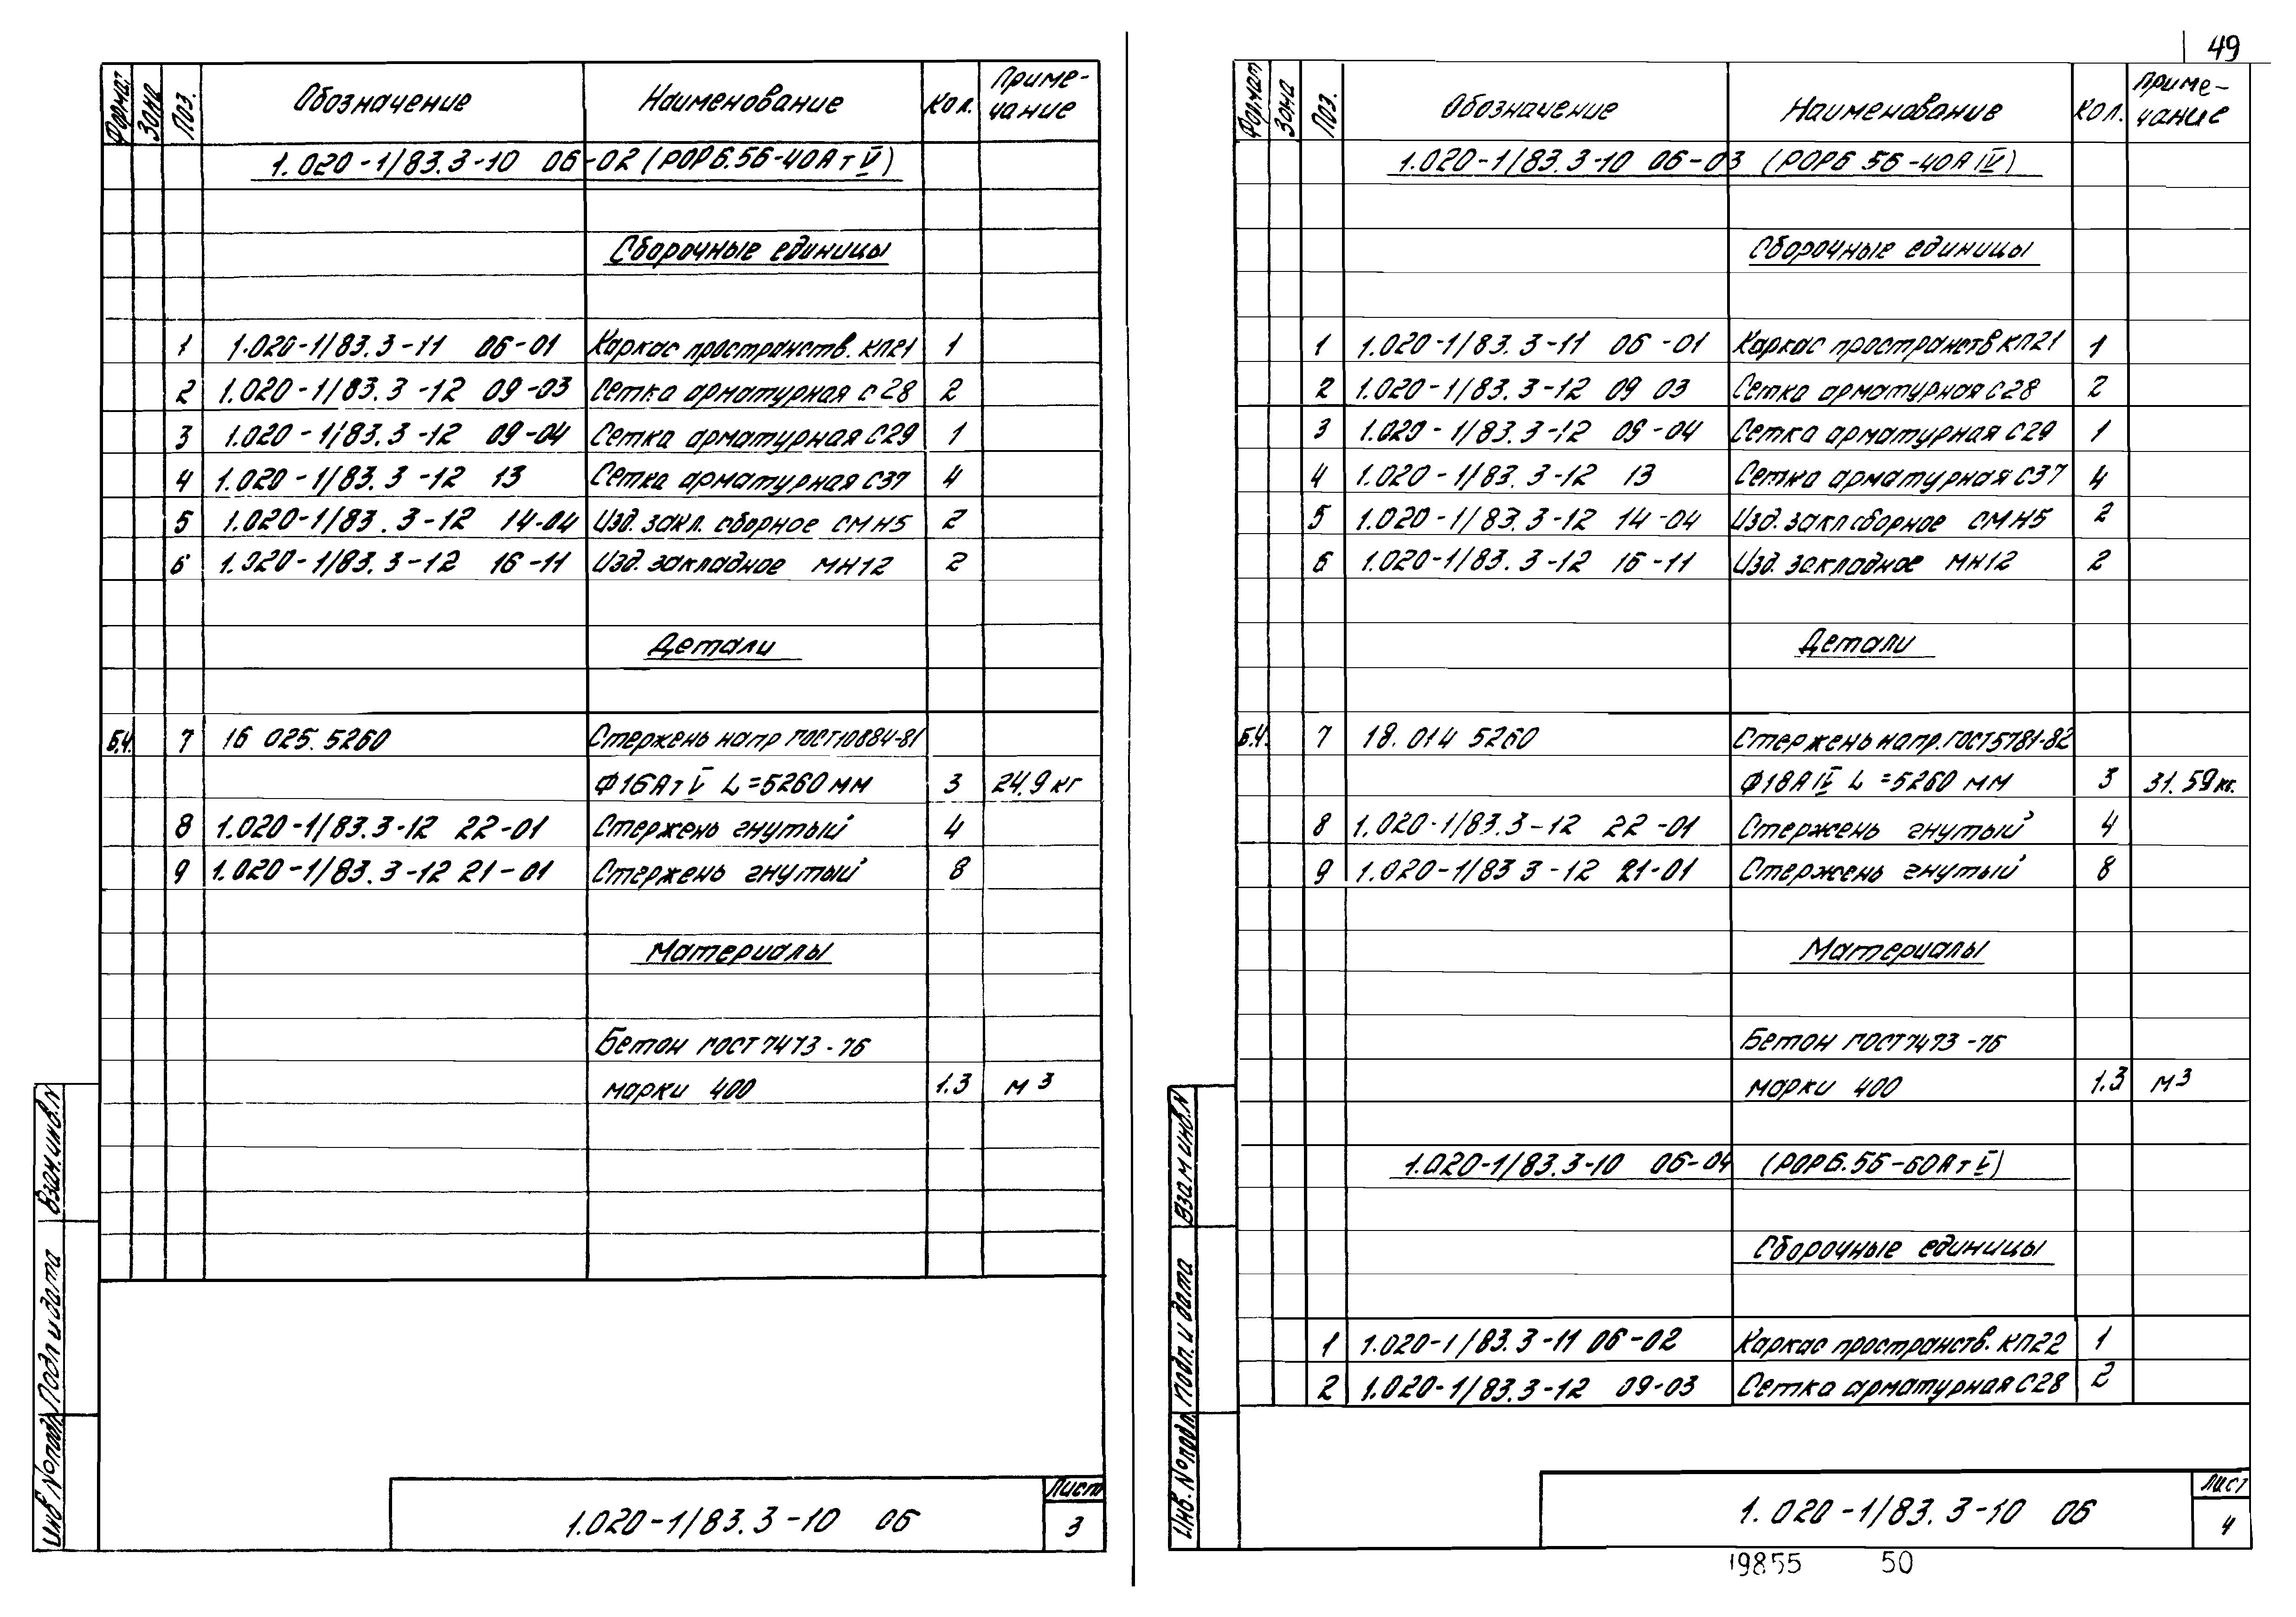 49
Формат Зона Поз. Обозначение Наименование Кол. Приме-чание
1.020-1/83.3-10 06-02 (РОР6.56-40АтV)
Сборочные единицы
1 1.020-1/83.3-11 06-01 Каркас пространств. КП21 1
2 1.020-1/83.3-12 09-03 Сетка арматурная С28 2
3 1.020-1/83.3-12 09-04 Сетка арматурная С29 1
4 1.020-1/83.3-12 13 Сетка арматурная С37 4
5 1.020-1/83.3-12 14-04 Изд. закл. сборное СМН5 2
6 1.020-1/83.3-12 16-11 Изд. закладное МН12 2
Детали
Б.Ч. 7 16 025.5260 Стержень напр ГОСТ10884-81
Ф16АтV L=5260 мм 3 24,9 кг
8 1.020-1/83.3-12 22-01 Стержень гнутый 4
9 1.020-1/83.3-12 21-01 Стержень гнутый 8
Материалы
Бетон ГОСТ7473-76
марки 400 1.3 м3
Взам.инв.N
Подп и дата
Инв N подл.
1.020-1/83.3-10 06
Лист
3
Формат Зона Поз. Обозначение Наименование Кол. Приме-чание
1.020-1/83.3-10 06-03 (РОР6 56-40АIV)
Сборочные единицы
1 1.020-1/83.3-11 06-01 Каркас пространств КП21 1
2 1.020-1/83.3-12 09 03 Сетка арматурная С28 2
3 1.020-1/83.3-12 09-04 Сетка арматурная С29 1
4 1.020-1/83.3-12 13 Сетка арматурная С37 4
5 1.020-1/83.3-12 14-04 Изд. закл сборное СМН5 2
6 1.020-1/83.3-12 16-11 Изд. закладное МН12 2
Детали
Б.Ч. 7 18.014 5260 Стержень напр. ГОСТ5781-82
Ф18АIV L=5260 мм 3 31.59кг.
8 1.020-1/83.3-12 22-01 Стержень гнутый 4
9 1.020-1/83 3-12 21-01 Стержень гнутый 8
Материалы
Бетон ГОСТ7473-76
марки 400 1.3 м3
1.020-1/83.3-10 06-04 (РОР6.56-60АтV)
Сборочные единицы
1 1.020-1/83.3-11 06-02 Каркас пространств. КП22 1
2 1.020-1/83.3-12 09-03 Сетка арматурная С28 2
Взам инв.N
Подп. и дата
Инв. N подл.
1.020-1/83.3-10 06
Лист
4
19855 50